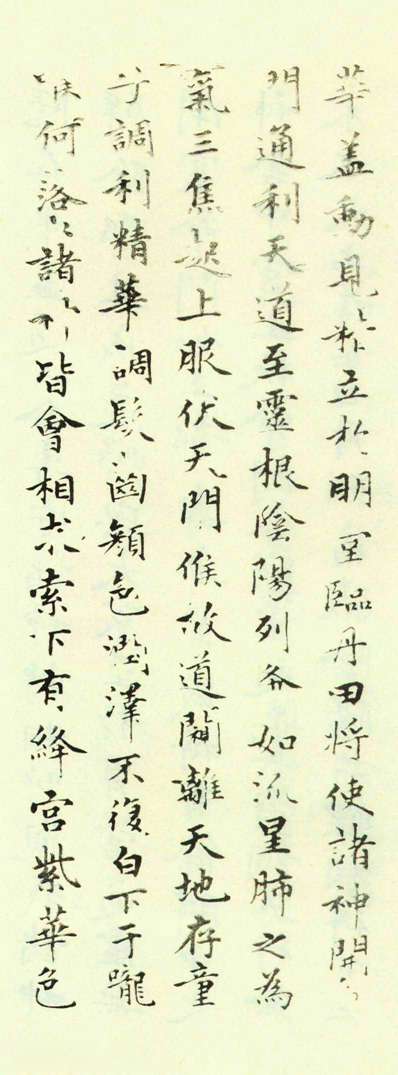 華盖動見精立於明堂臨丹田將使諸神開
門通利天道至靈根陰陽列布如流星肺之為
氣三焦起上服伏天門候故道闚離天地存童
子調利精華調髮齒顏色潤澤不復白下于嚨
喉何落落諸神皆會相求索下有絳宮紫華色